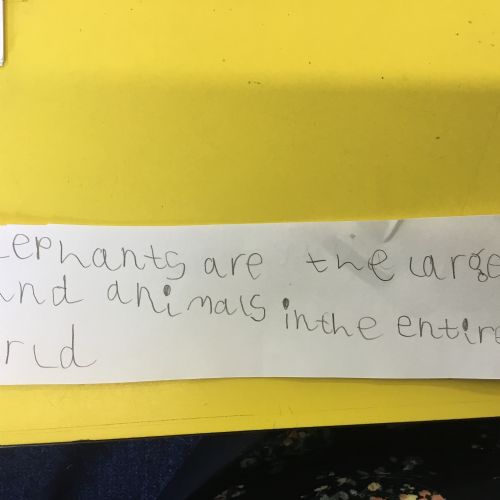 lephants are the large
and animals in the entire
rld